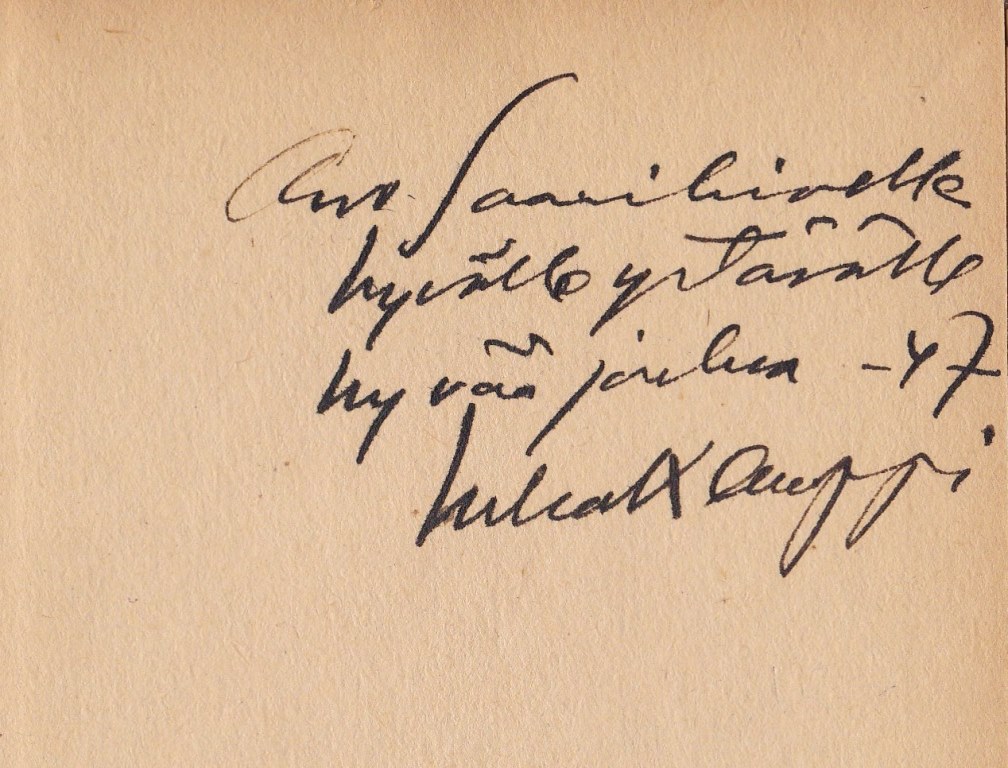 Orvo Saarikivelle
hyvälle ystävälle
hyvää joulua -47
Kauppi